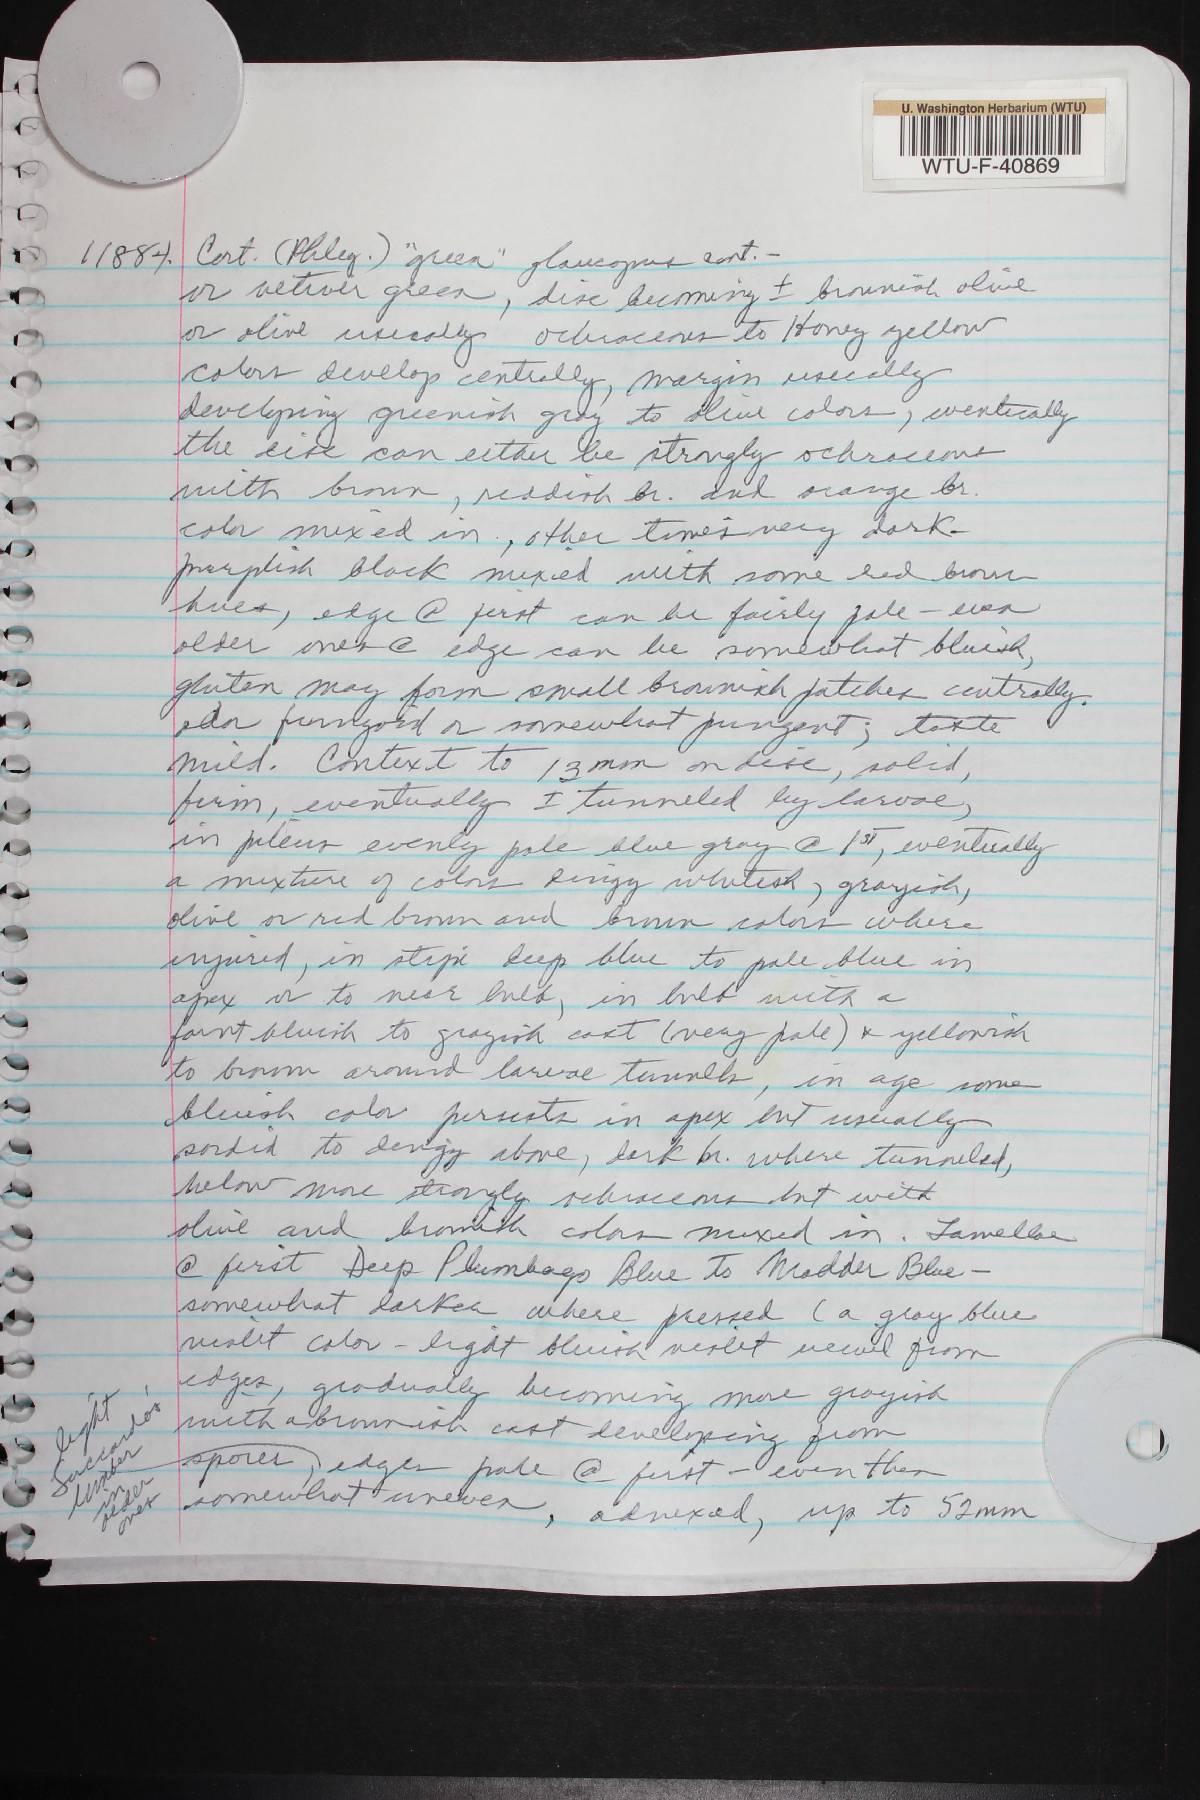 U. Washington Herbarium (WTU)
WTU-F-40869
11884. Cort. (Phleg.) "green" glaucopus cont. -
or vetiver green, disc becoming ± brownish olive
or olive usually ochraceous to Honey yellow
colors develop centrally, margin usually
developing greenish gray to olive colors, eventually
the disc can either be strongly ochraceous
with brown, reddish br. and orange br.
color mixed in, other times very dark
purplish black mixed with some red brown
hues, edge @ first can be fairly pale - even
older ones @ edge can be somewhat bluish,
gluten may form small brownish patches centrally.
odor fungoid or somewhat pungent; taste
mild. Context to 13mm on disc, solid,
firm, eventually ± tunneled by larvae,
in pileus evenly pale blue gray @ 1st, eventually
a mixture of colors dingy whitish, grayish,
olive or red brown and brown colors where
injured, in stipe deep blue to pale blue in
apex or to near bulb, in bulb with a
faint bluish to grayish cast (very pale) & yellowish
to brown around larvae tunnels, in age some
bluish color persists in apex but usually
sordid to dingy above, dark br. where tunneled,
below more strongly ochraceous but with
olive and brownish colors mixed in. Lamellae
@ first Deep Plumbago Blue to Madder Blue -
somewhat darker where pressed (a gray blue
violet color - light bluish violet viewed from
edges, gradually becoming more grayish
with a brownish cast developing from
spores), edges pale @ first - even then
somewhat uneven, adnexed, up to 52mm
light
Saccardo's
Umber
in
older
ones